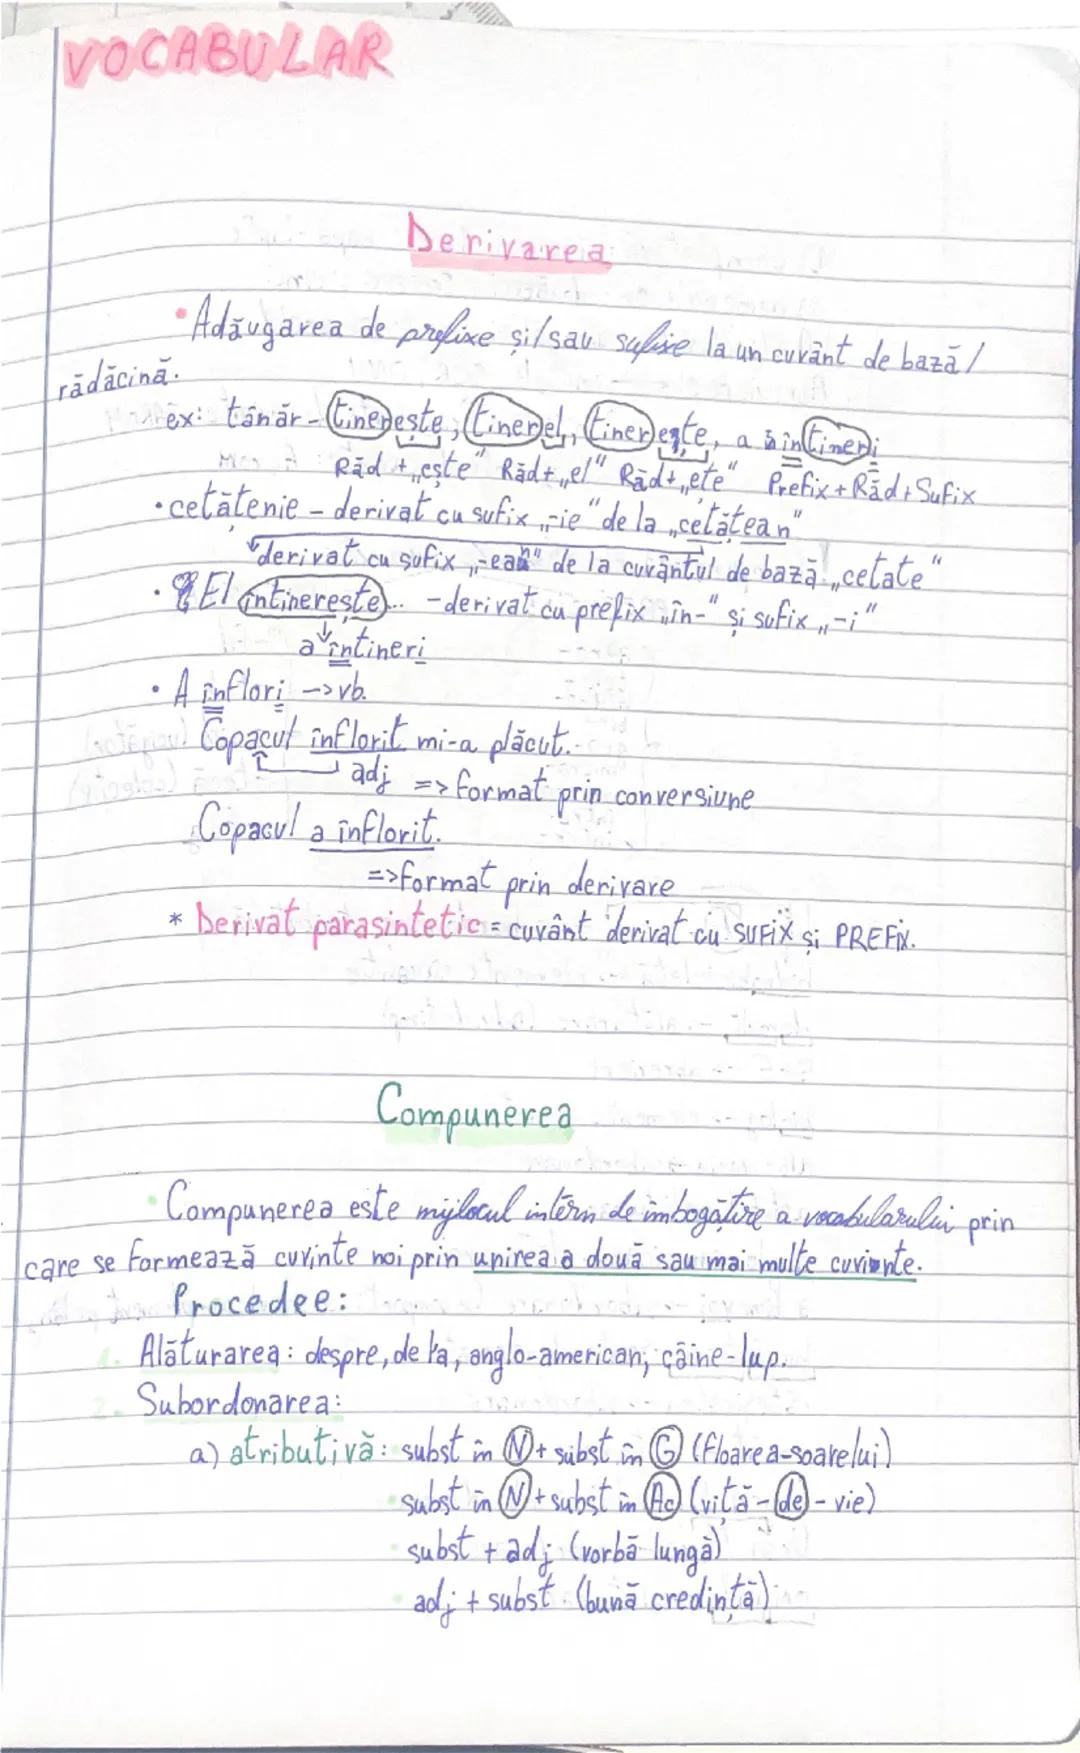 VOCABULAR
Derivarea
• Adăugarea de prefixe și/sau sufixe la un cuvânt de bază/
rădăcină.
ex: tânăr - tinerește, tinerel, tinerețe, a întineri
Răd + „ește" Răd + „el" Răd + „ețe" Prefix + Răd + Sufix
• cetățenie - derivat cu sufix „-ie" de la „cetățean"
derivat cu sufix „-ean" de la cuvântul de bază „cetate"
• El întinerește... - derivat cu prefix „în-" și sufix „-i"
a întineri
• A înflori -> vb.
Copacul înflorit mi-a plăcut.
adj => format prin conversiune
Copacul a înflorit.
=> format prin derivare
* Derivat parasintetic = cuvânt derivat cu SUFIX și PREFIX.
Compunerea
• Compunerea este mijlocul intern de îmbogățire a vocabularului prin
care se formează cuvinte noi prin unirea a două sau mai multe cuvinte.
Procedee:
1. Alăturarea: despre, de la, anglo-american, câine-lup.
2. Subordonarea:
a) atributivă: subst în N + subst în G (floarea-soarelui)
• subst în N + subst în Ac (viță-de-vie)
• subst + adj (vorbă lungă)
• adj + subst (bună credință)